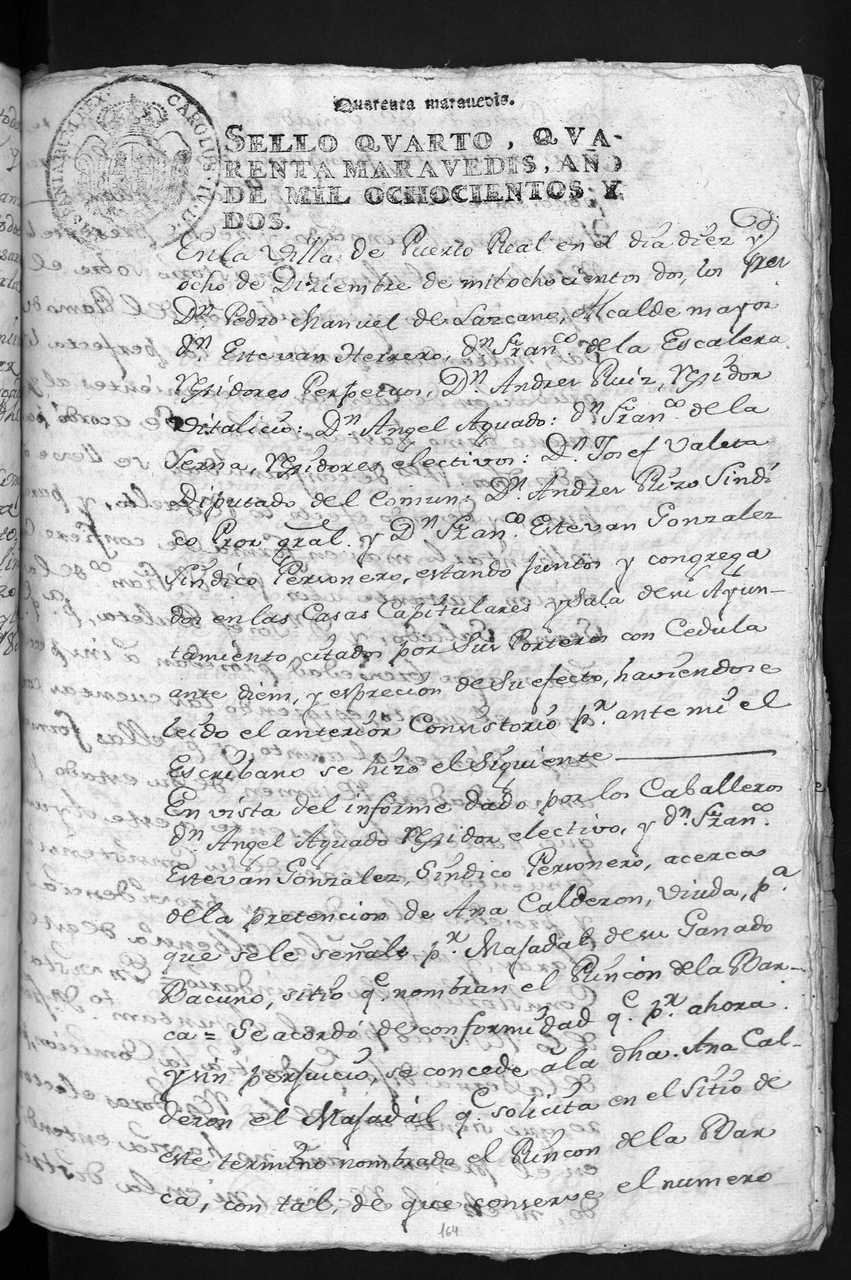 Quarenta maravedis.
SELLO QVARTO, QVA-
RENTA MARAVEDIS, AÑO
DE MIL OCHOCIENTOS Y
DOS.
CAROLUS IV D.G. HISPANIARUM REX
En la Villa de Puerto Real en el dia diez y
ocho de Diziembre de mil ochocientos dos, los Sres
Dn. Pedro Manuel de Lazcano, Alcalde mayor
dn. Estevan Herrero, dn. Franco. de la Escalera
Rexidores Perpetuos, Dn. Andres Ruiz, Rexidor
vitalicio: Dn. Angel Aguado: dn. Franco. de la
Serna, Rexidores electivos: Dn. Josef Valeta
Diputado del Comun: Dn. Andres Rizo Sindi
co Pror. gral. y Dn. Franco. Estevan Gonzalez
Sindico Personero, estando juntos y congrega
dos en las Casas Capitulares y Sala de su Ayun-
tamiento, citados por sus Porteros con Cedula
ante diem, y espreción de su efecto, haviendose
leido el anterior Convistorio pr. ante mi el
Escribano se hizo el Siguiente
En vista del informe dado por los Caballeros
dn. Angel Aguado Rexidor electivo, y dn. Franco.
Estevan Gonzalez, Sindico Personero, acerca
de la pretencion de Ana Calderon, Viuda, pa.
que se le señale pr. Majadal, de su Ganado
Bacuno, sitio qe. nombran el Rincon de la Bar-
ca = Se acordó de conformidad qe. pr. ahora
y sin perjuicio, se concede á la dha. Ana Cal-
deron el Majadál qe. solicita en el Sitio de
este termino nombrado el Rincon de la Bar
ca, con tal, de que conserve el numero
164